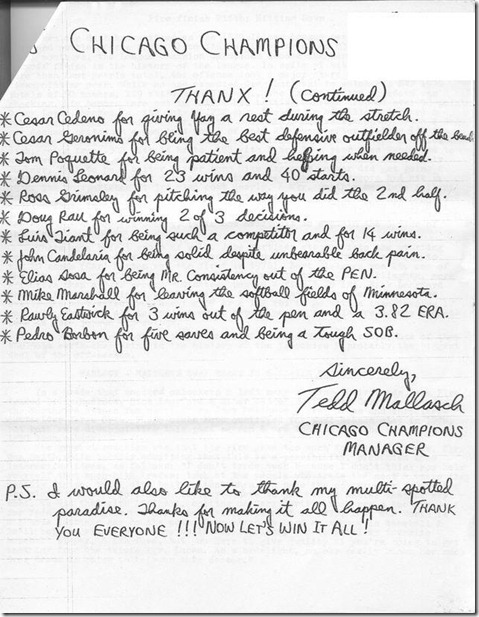 CHICAGO CHAMPIONS
THANX! (Continued)
* Cesar Cedeno for giving Yaz a rest during the stretch.
* Cesar Geronimo for being the best defensive outfielder off the bench.
* Tom Poquette for being patient and helping when needed.
* Dennis Leonard for 23 wins and 40 starts.
* Ross Grimsley for pitching the way you did the 2nd half.
* Doug Rau for winning 2 of 3 decisions.
* Luis Tiant for being such a competitor and for 14 wins.
* John Candelaria for being solid despite unbearable back pain.
* Elias Sosa for being Mr. Consistency out of the PEN.
* Mike Marshall for leaving the softball fields of Minnesota.
* Rawly Eastwick for 3 wins out of the pen and a 3.82 ERA.
* Pedro Borbon for five saves and being a tough SOB.
Sincerely,
Tedd Mallasch
CHICAGO CHAMPIONS
MANAGER
P.S. I would also like to thank my multi-spotted
paradise. Thanks for making it all happen. THANK
YOU EVERYONE!!! NOW LET'S WIN IT ALL!